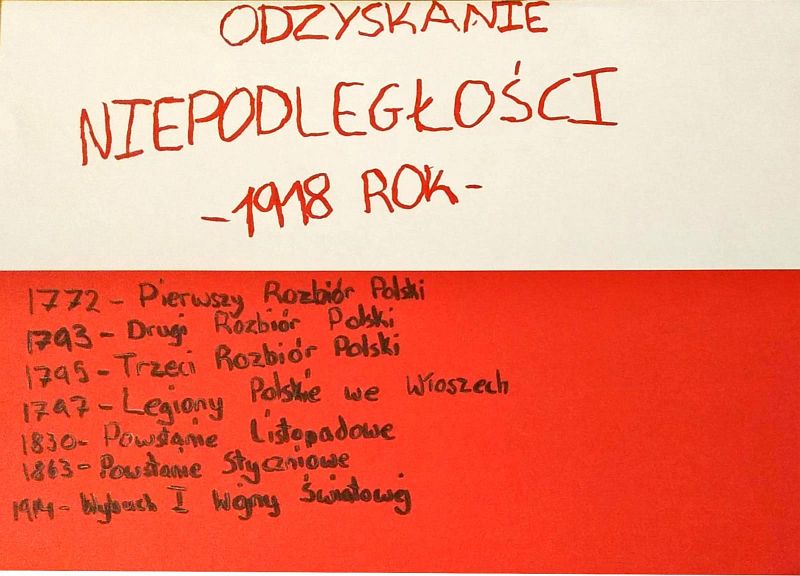 ODZYSKANIE
NIEPODLEGŁOŚCI
-1918 ROK-
1772 - Pierwszy Rozbiór Polski
1793 - Drugi Rozbiór Polski
1795 - Trzeci Rozbiór Polski
1797 - Legiony Polskie we Włoszech
1830 - Powstanie Listopadowe
1863 - Powstanie Styczniowe
1914 - Wybuch I Wojny Światowej